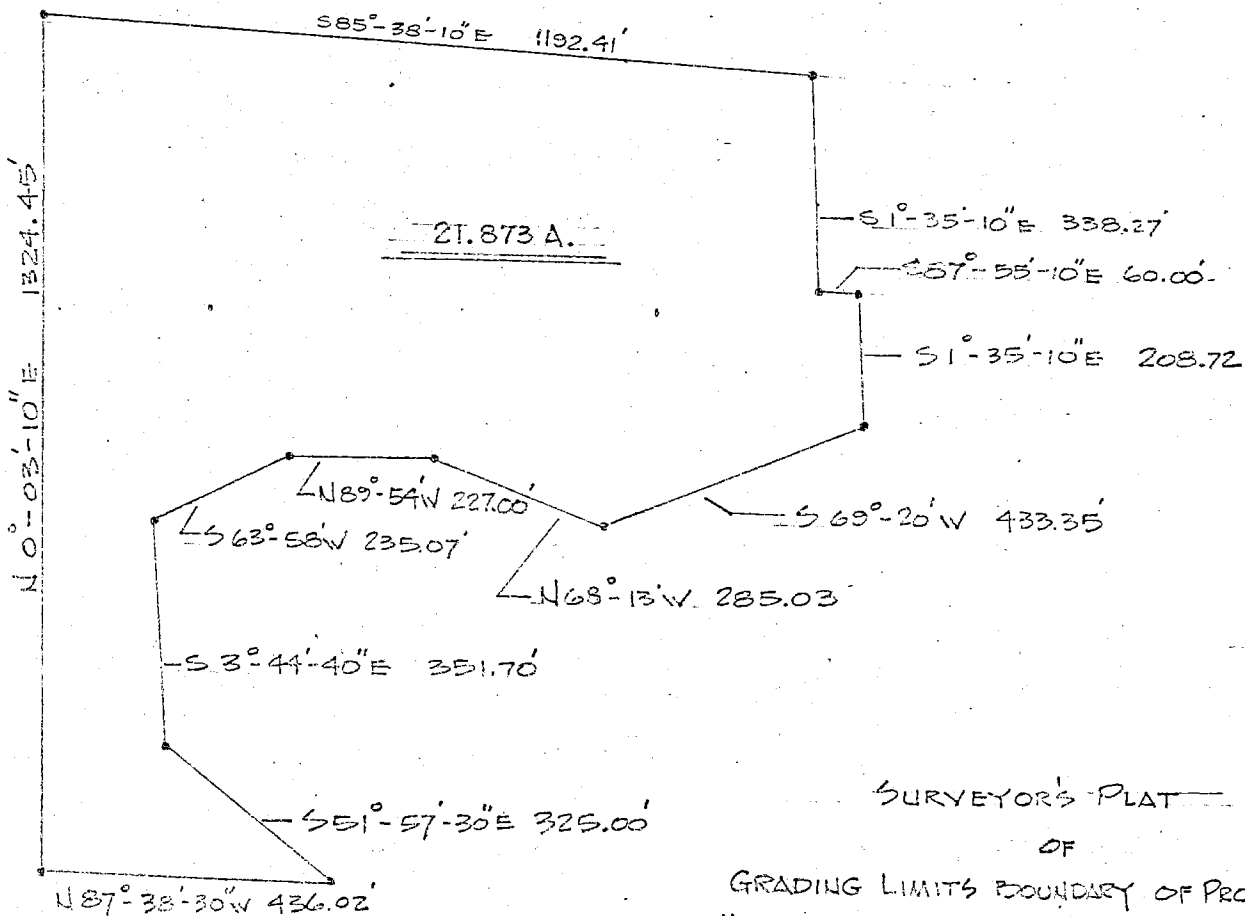 S85°-38'-10"E 1192.41'
N 0°-03'-10"E 1324.45'
21.873 A.
S1°-35'-10"E 338.27'
S87°-55'-10"E 60.00'
S1°-35'-10"E 208.72
N89°-54'W 227.00'
S 63°-58'W 235.07'
S 69°-20'W 433.35'
N68°-13'W 285.03
S 3°-44'-40"E 351.70'
S51°-57'-30"E 325.00'
N87°-38'-30"W 436.02'
SURVEYOR'S PLAT
OF
GRADING LIMITS BOUNDARY OF PRO